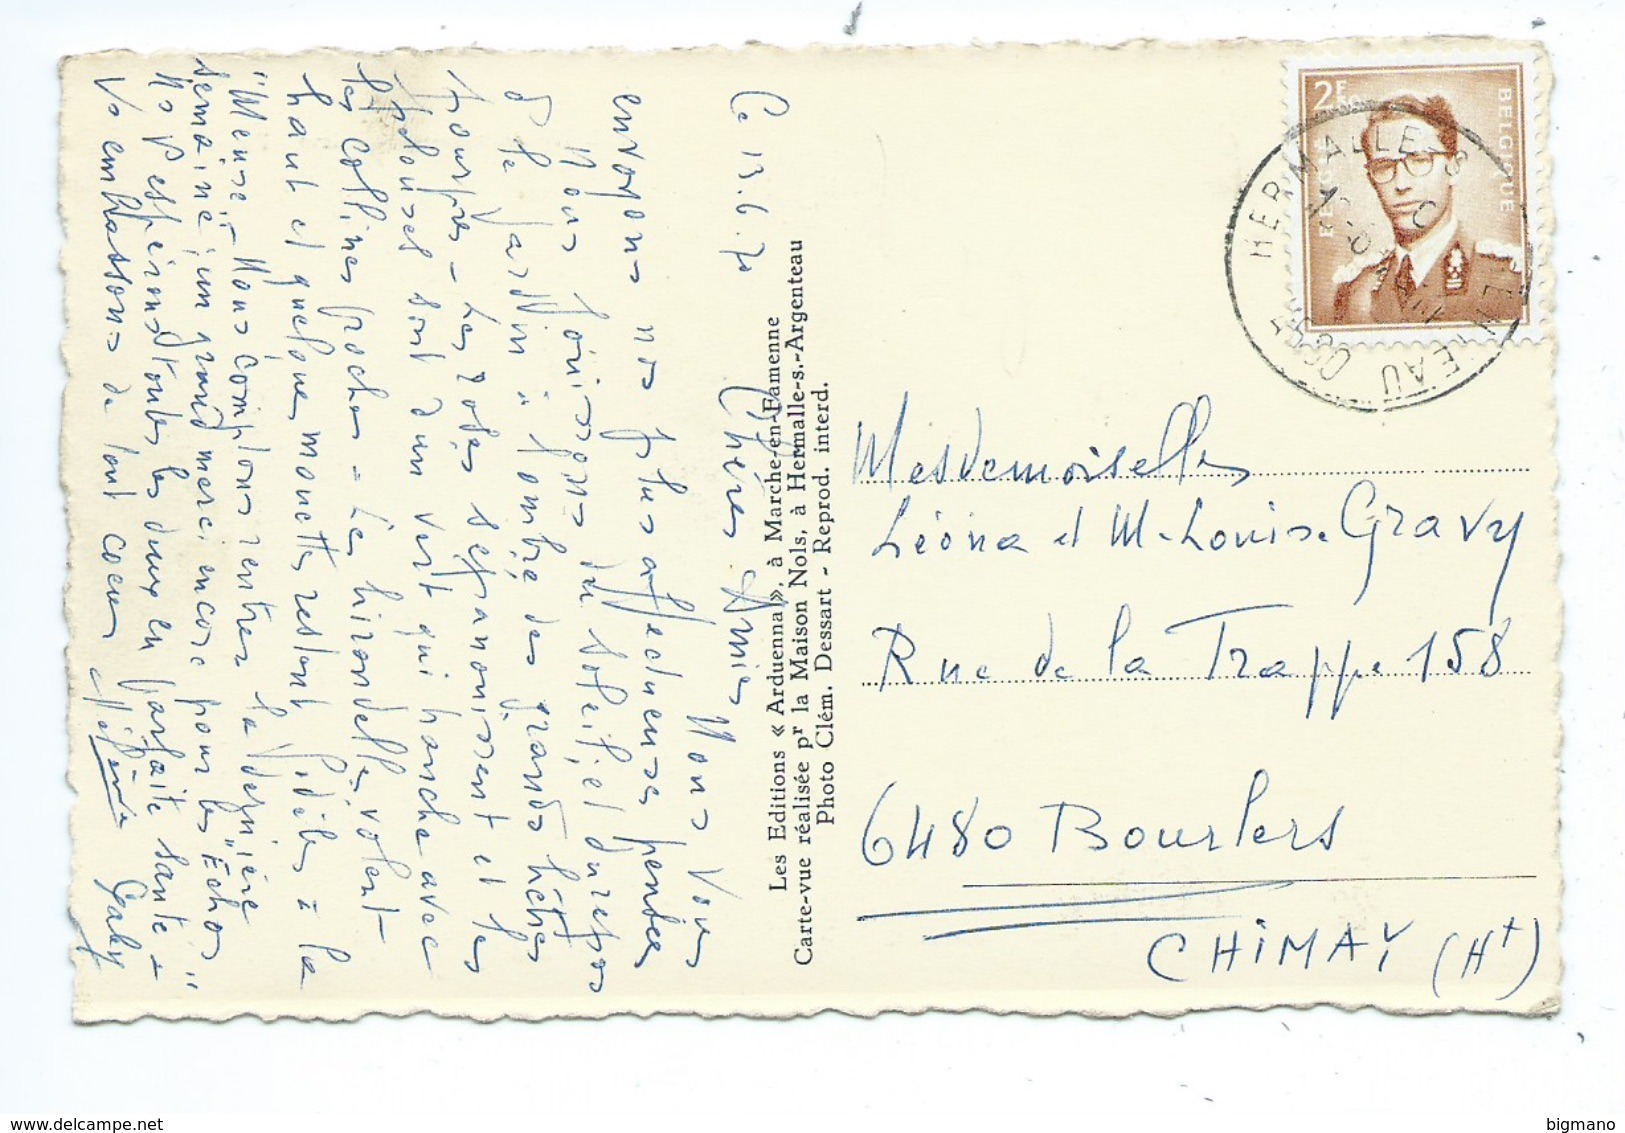 Ce 13.6.70
Chères Amies
Nous vous
envoyons nos plus affectueuses pensées
Nous jouissons du soleil et du repos
de le jardin à l'ombre des grands hêtres
pourpres - Les roses s'épanouissent et les
pelouses sont d'un vert qui tranche avec
les collines proches - Les hirondelles volent
haut et quelques mouettes restent fidèles à la
"Meuse". Nous comptons rentrer la dernière
semaine, un grand merci encore pour les "Echos"
Ns Vs espérons toutes les deux en parfaite santé -
Vs embrassons de tout coeur
Gaby
Les Editions « Arduenna », à Marche-en-Famenne
Carte-vue réalisée pr la Maison Nols, à Hermalle-s.-Argenteau
Photo Clém. Dessart - Reprod. interd.
2F50
BELGIQUE
BELGIË
HERMALLE-S
Mesdemoiselles
Léona et M-Louise Gravy
Rue de la Trappe 158
6480 Bourlers
CHIMAY (Ht)
www.delcampe.net
bigmano